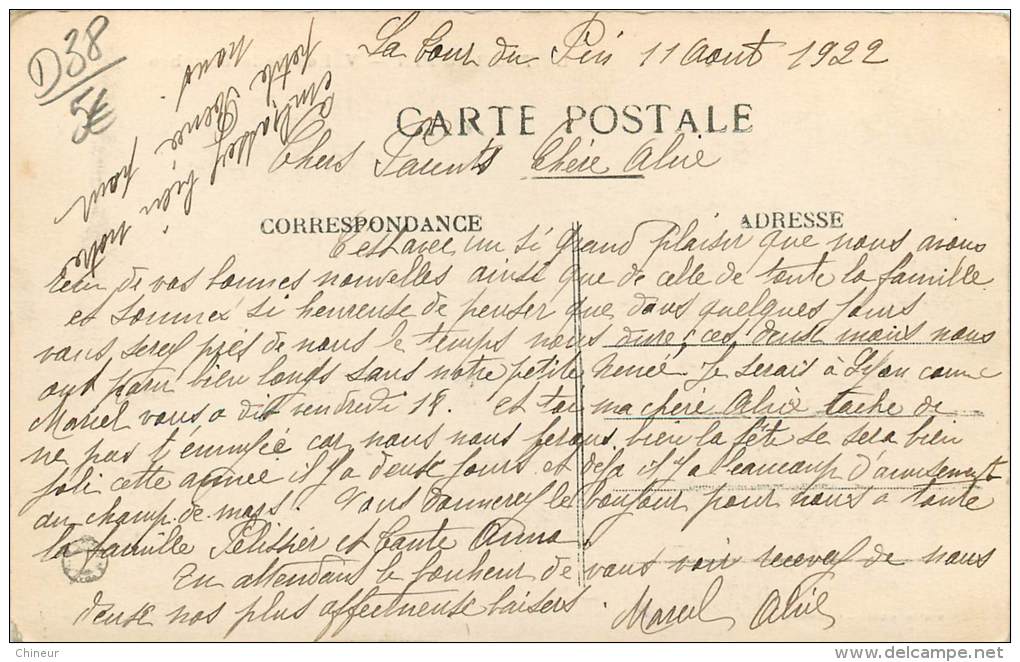 D38
5€
La Tour du Pin 11 Aout 1922
CARTE POSTALE
Chers Parents Chère Alice
CORRESPONDANCE
ADRESSE
C'est avec un si grand plaisir que nous avons
reçu de vos bonnes nouvelles ainsi que de celle de toute la famille
et sommes si heureuse de penser que dans quelques jours
vous serez près de nous le temps nous dure, ces deux mois nous
ont paru bien longs sans notre petite Renée. Je serais à Lyon comme
Marcel vous a dit vendredi 18. et toi ma chère Alice tache de
ne pas t'ennuyée car nous nous ferons bien la fête se sera bien
joli cette année il y a deux jours et déja il y a beaucoup d'amusement
au champ de mars. Vous donnerez le bonjour pour nous a toute
la famille Pelissier et tante Anna
En attendant le bonheur de vous voir recevez de nous
deux nos plus affectueux baisers.
Marcel Alice
embrassez bien notre
petite Renée pour
nous
Chineur
delcampe.net